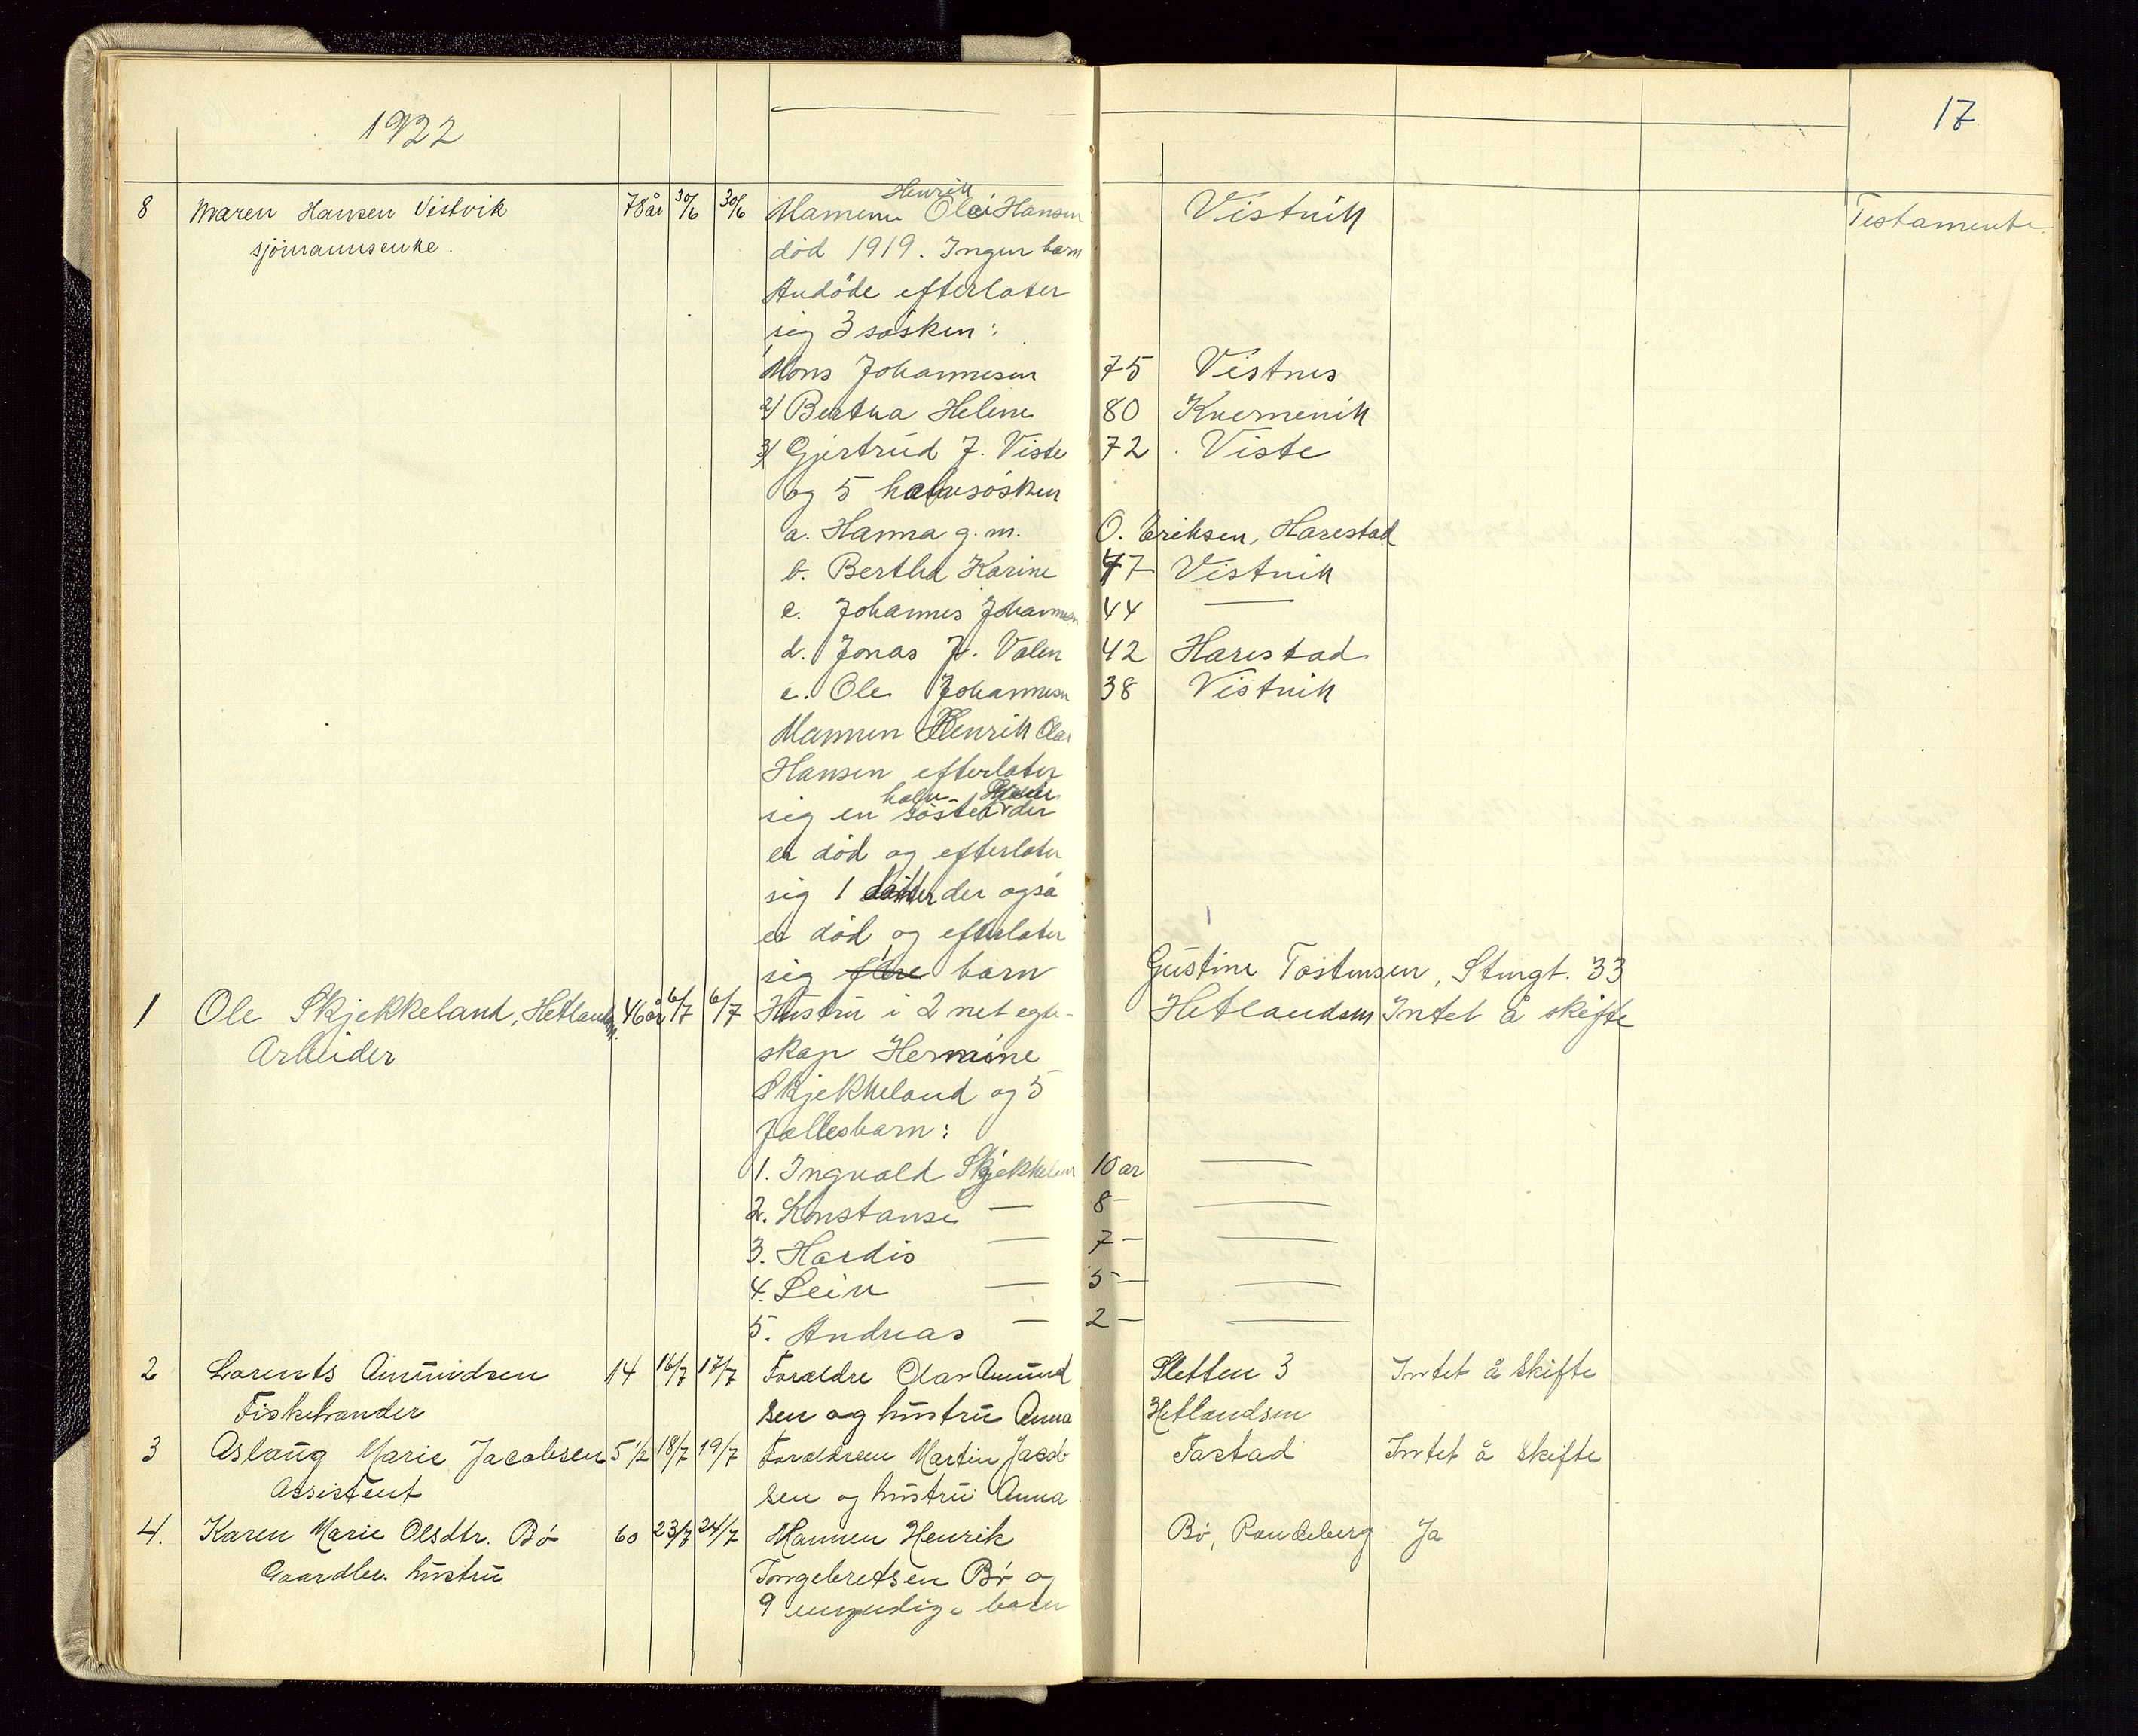 1922
17
8 Maren Hansen Vistvik 78 år 30/6 30/6 Mannen Henrik Olai Hansen Vistvik Testamente
sjömannsenke. död 1919. Ingen barn
Avdöde efterlater
sig 3 søsken:
1/ Mons Johannesen 75 Vistnes
2/ Bertha Helene 80 Kvernevik
3/ Gjertrud J. Viste 72 Viste
og 5 halvsøsken
a. Hanna g.m. O. Eriksen, Harestad
b. Bertha Karine 47 Vistvik
c. Johannes Johannesen 44 —
d. Jonas J. Valen 42 Harestad
e. Ole Johannesen 38 Vistvik
Mannen Henrik Olai
Hansen efterlater
sig en halv-søster der
er død og efterlater
sig 1 datter der også
er død og efterlater
sig flere barn Gustine Tostensen, Stingt. 33
1 Ole Skjekkeland, Hetlandsm. 46 år 6/7 6/7 Hustru i 2net egte- Hetlandsm Intet å skifte
Arbeider skap Hermine
Skjekkeland og 5
fællesbarn:
1. Ingvald Skjekkeland 10 år —
2. Konstanse — 8 — —
3. Hardis — 7 — —
4. Leiv — 5 — —
5. Andreas — 2 — —
2 Lorents Amundsen 14 16/7 17/7 Forældre Olav Amund Sletten 3 Intet å skifte
Fiskehander sen og hustru Anna Hetlandsm
3 Aslaug Marie Jacobsen 5 1/2 18/7 19/7 Forældreen Martin Jacob Tastad Intet å skifte
Assistent sen og hustru Anna
4. Karen Marie Olsdtr. Bö 60 23/7 24/7 Mannen Henrik Bö, Randeberg Ja
Gaardbr. hustru Ingebretsen Bö og
9 umyndige barn